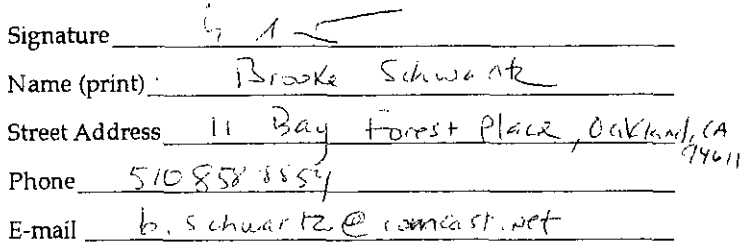 Signature
Name (print) Brooke Schwartz
Street Address 11 Bay Forest Place, Oakland, CA 94611
Phone 510 858
E-mail b.schwartz@comcast.net